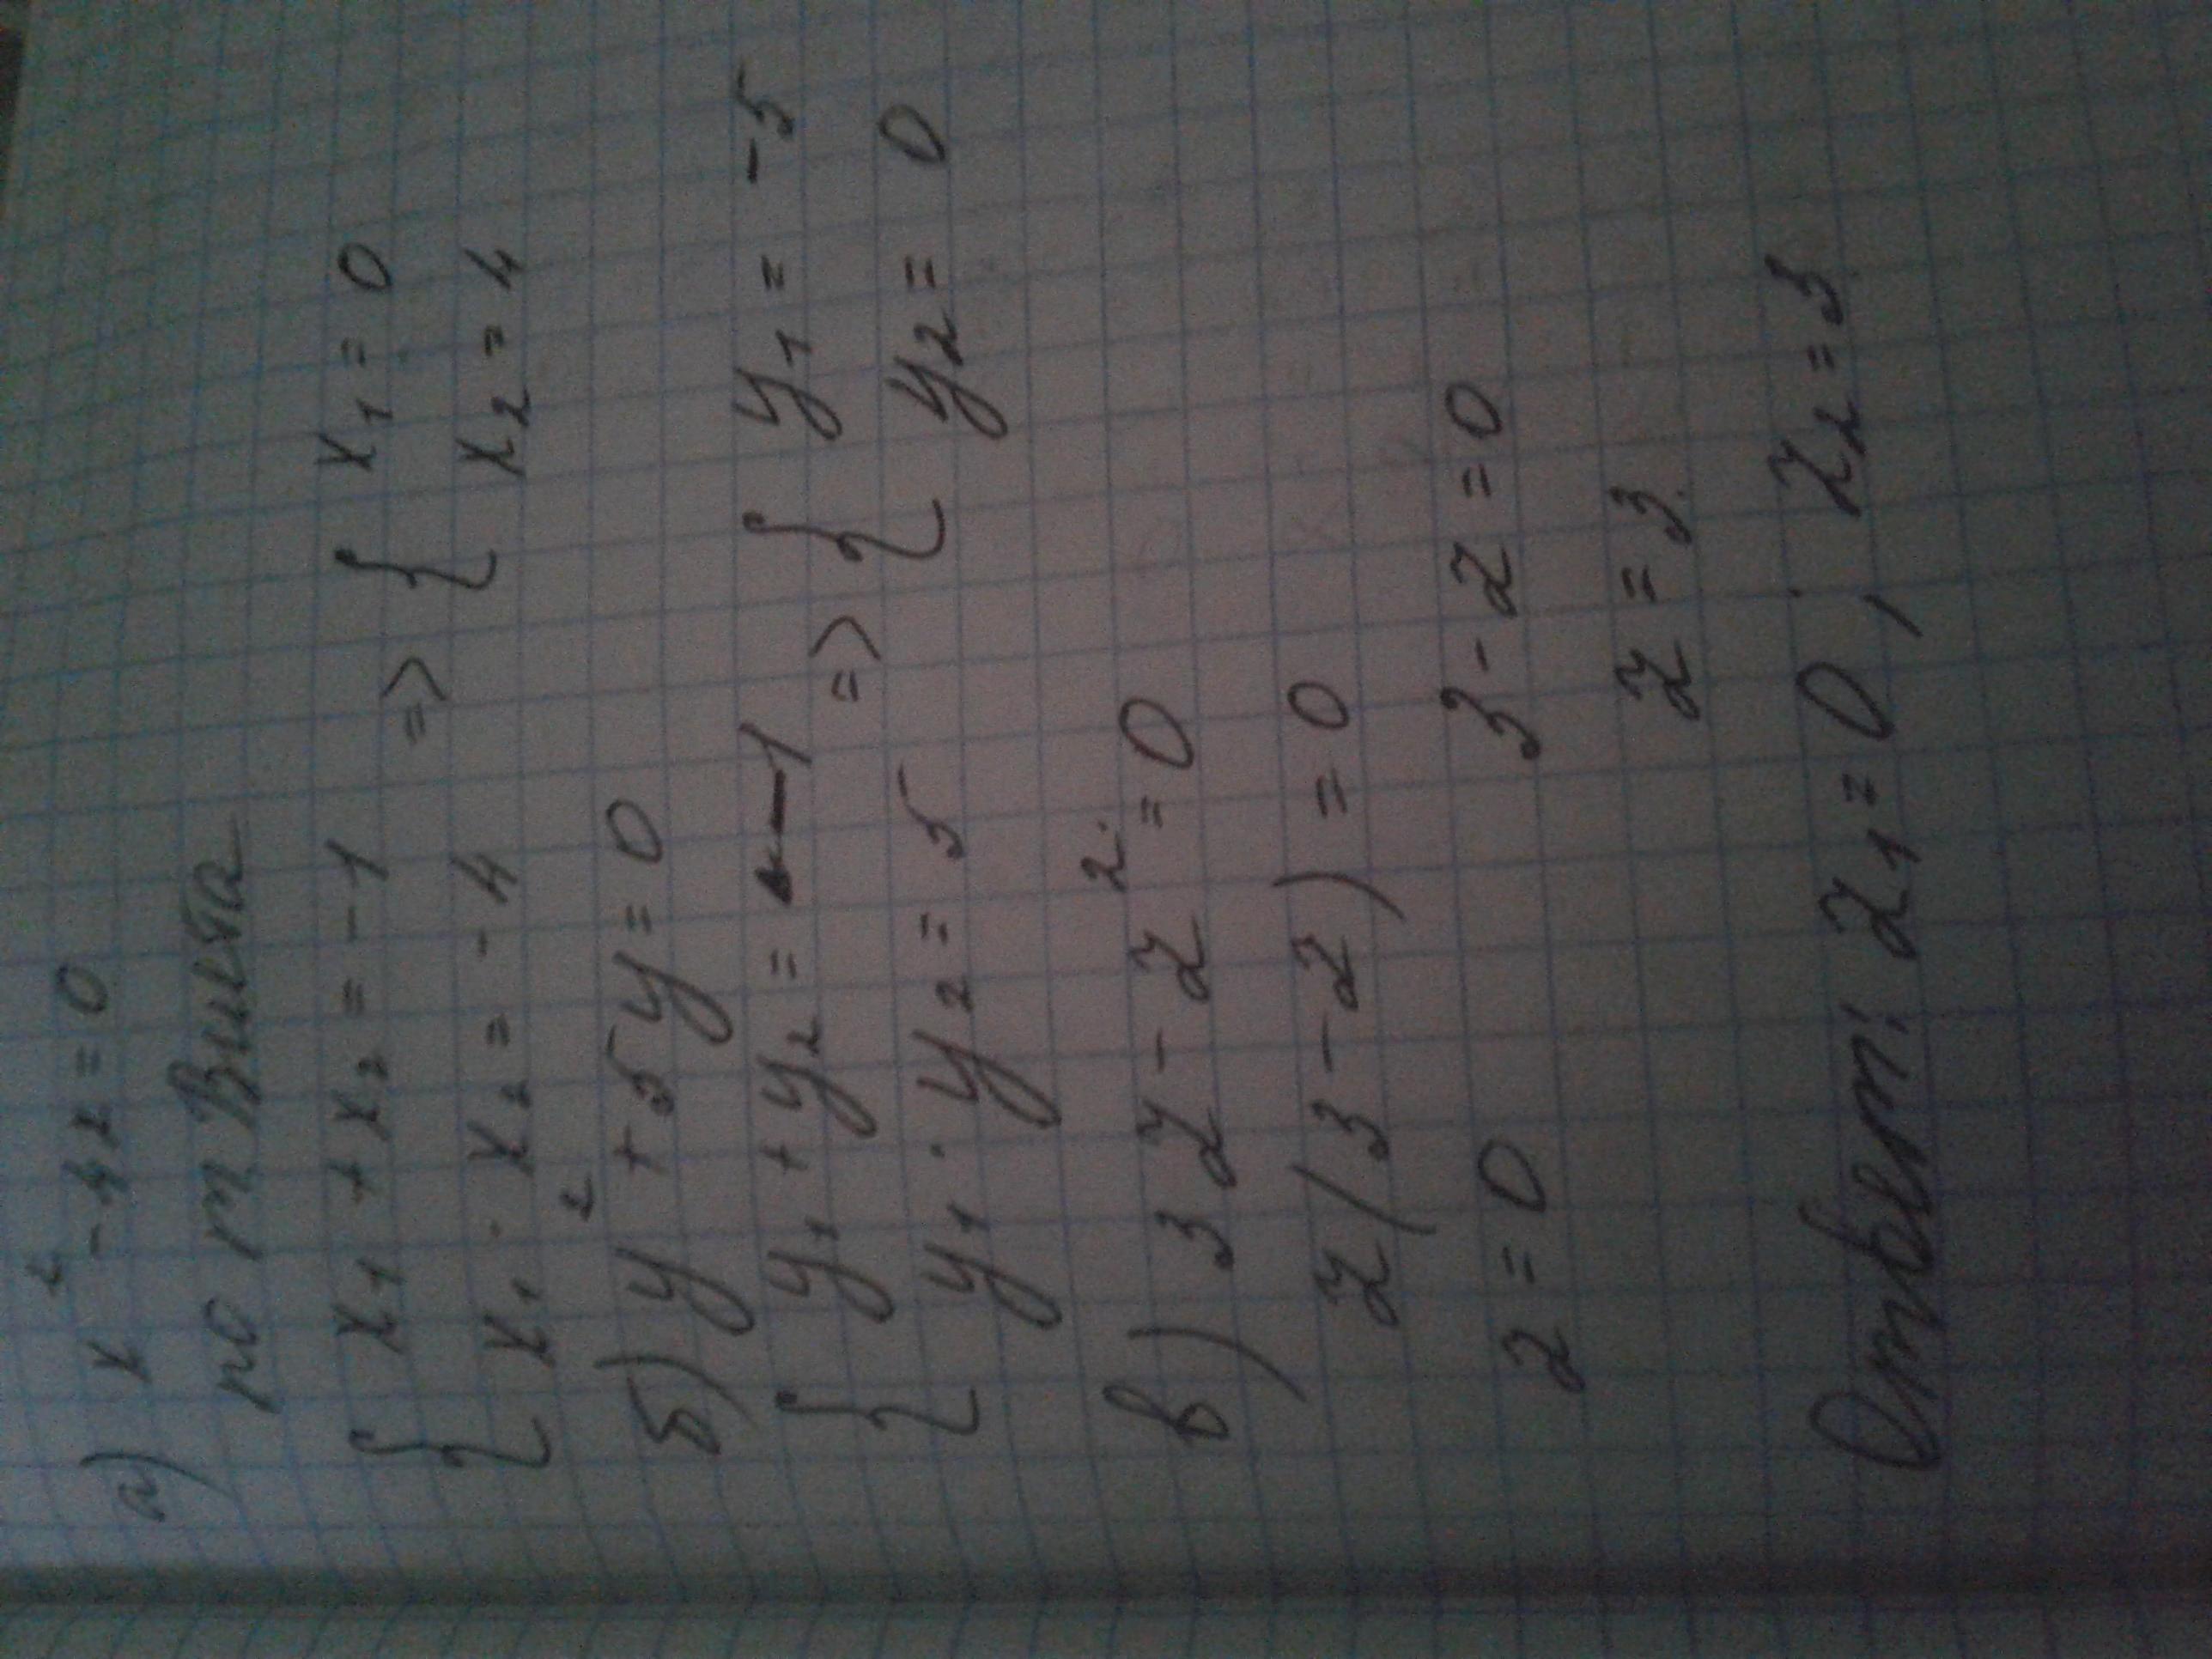 а) x² - 4x = 0
по т Виета
{ x₁ + x₂ = -1
x₁ · x₂ = -4 => { x₁ = 0
x₂ = 4
б) y² + 5y = 0
{ y₁ + y₂ = -1
y₁ · y₂ = 5 => { y₁ = -5
y₂ = 0
в) 3z - z² = 0
z(3 - z) = 0
z = 0 3 - z = 0
z = 3
Ответ: z₁ = 0; z₂ = 3